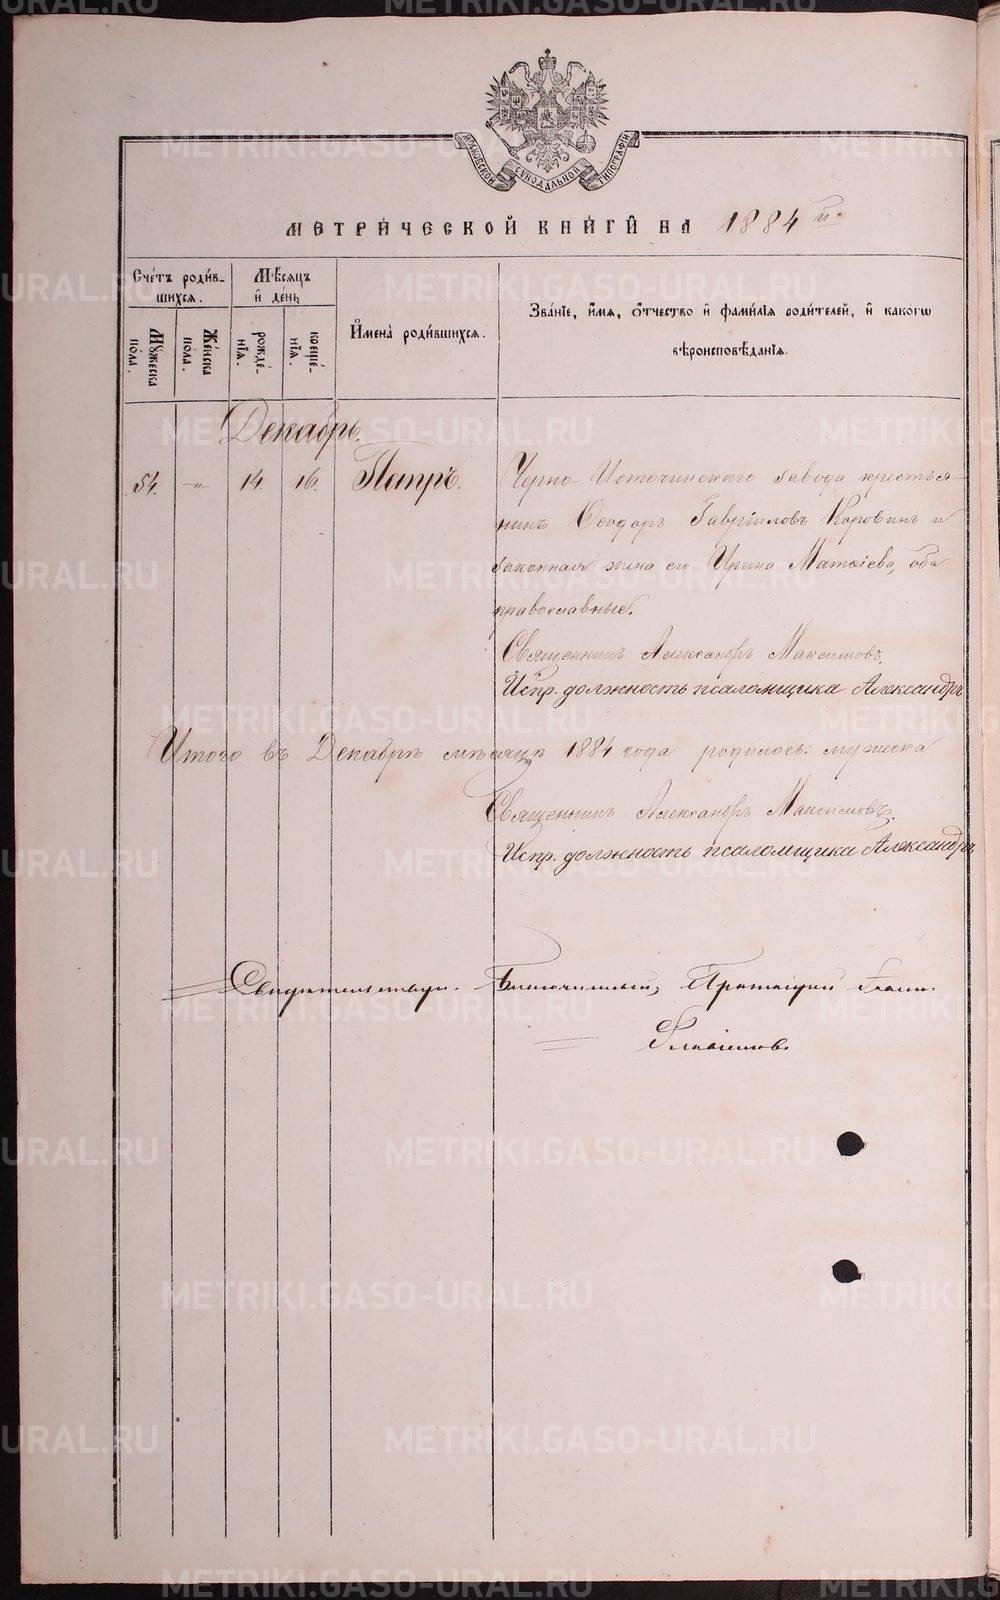 МОСКОВСКОЙ СѴНОДАЛЬНОЙ ТИПОГРАФІИ
МЕТРИ́ЧЕСКОЙ КНИ́ГИ НА 1884 й.
Сче́тъ роди́в-
шихся.
Мѣ́сяцъ
и҆ де́нь
И҆мена̀ роди́вшихся.
Зва́нїе, и҆́мя, ѻ҆́тчество и҆ фами́лїя роди́телей, и҆ какѡ́гѡ
вѣроисповѣ́данїя.
Мꙋ́жеска
по́ла.
Же́нска
по́ла.
рожде́-
нїя.
креще́-
нїя.
Декабрь.
54. -„- 14. 16. Петръ. Черно-Источинскаго завода крестья-
нинъ Ѳеодоръ Гавріиловъ Коровинъ и
законная жена его Ирина Матѳіева, оба
православные.
Священникъ Александръ Максимовъ.
Испр. должность псаломщика Александръ
Итого въ Декабрѣ мѣсяцѣ 1884 года родилось: мужеска
Священникъ Александръ Максимовъ.
Испр. должность псаломщика Александръ
Свидѣтельствов. Благочинный, Протоіерей
METRIKI.GASO-URAL.RU